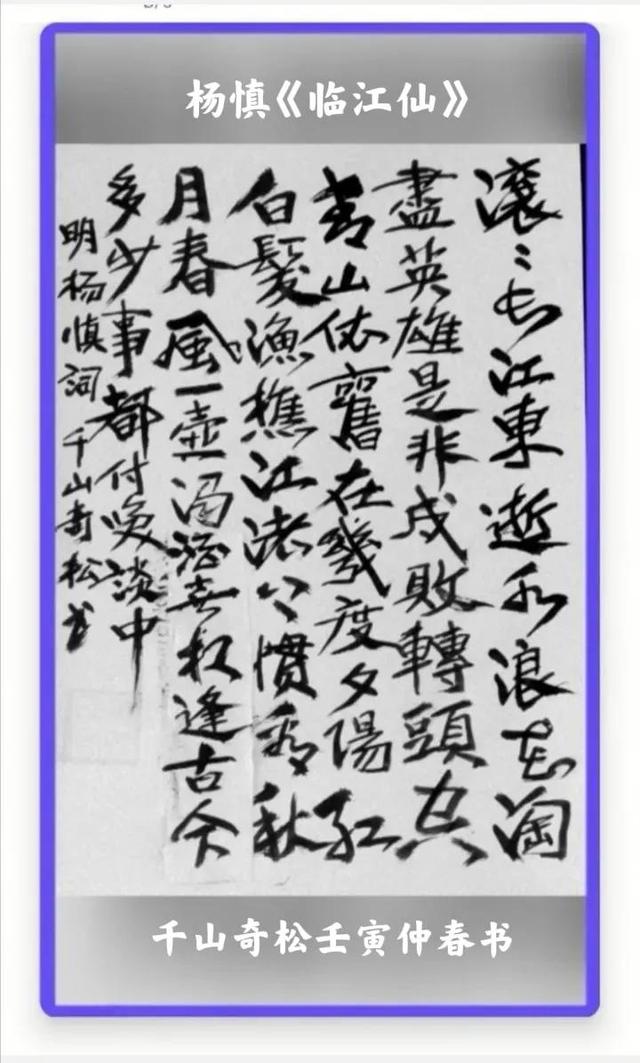 杨慎《临江仙》
滚〻长江東逝水浪花淘
盡英雄是非成敗轉頭空
青山依舊在幾度夕陽红
白髮漁樵江渚上惯看秋
月春風一壶浊酒喜相逢古今
多少事都付笑談中
明杨慎詞千山奇松书
千山奇松壬寅仲春书